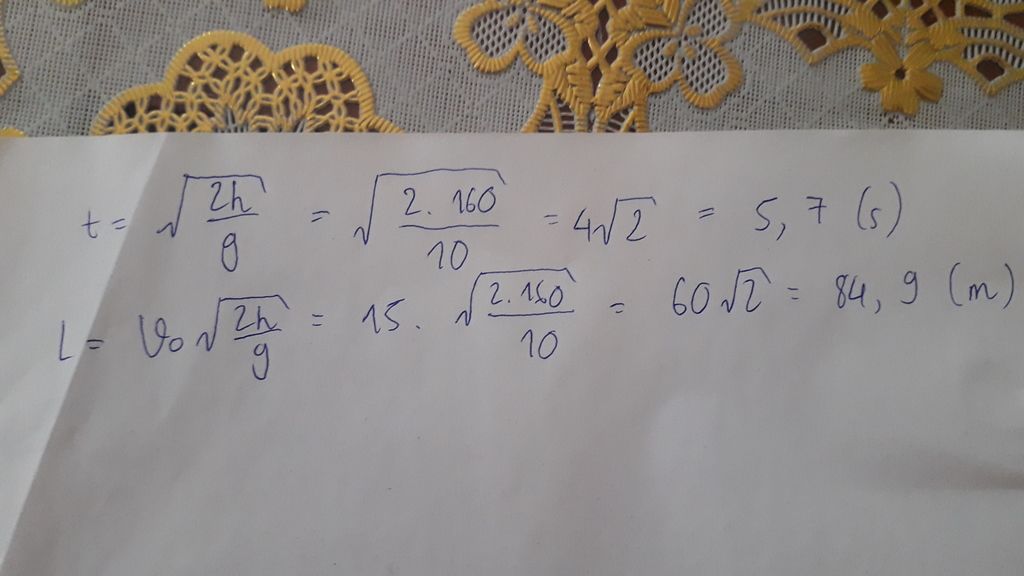 t = √(2h/g) = √(2.160/10) = 4√2 = 5,7 (s)
L = V₀√(2h/g) = 15.√(2.160/10) = 60√2 = 84,9 (m)